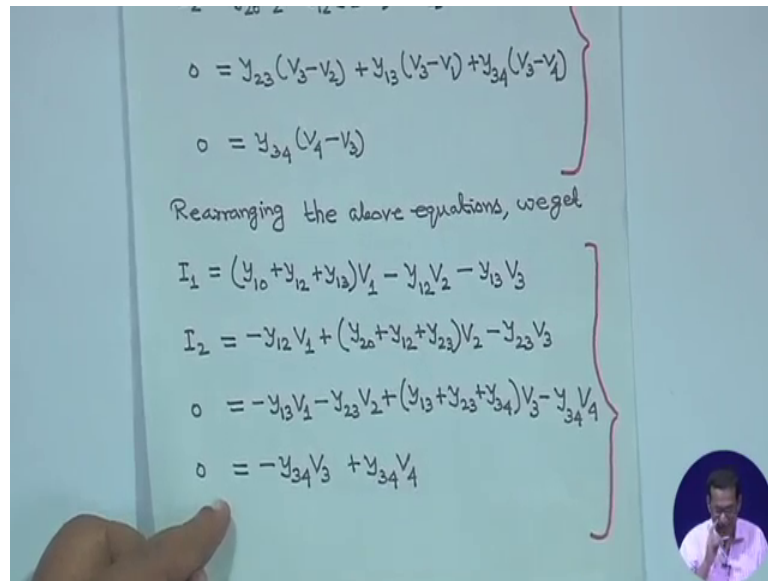 0 = y23(V3-V2) + y13(V3-V1) + y34(V3-V4)
0 = y34(V4-V3)
Rearranging the above equations, we get
I1 = (y10+y12+y13)V1 - y12V2 - y13V3
I2 = -y12V1 + (y20+y12+y23)V2 - y23V3
0 = -y13V1 - y23V2 + (y13+y23+y34)V3 - y34V4
0 = -y34V3 + y34V4